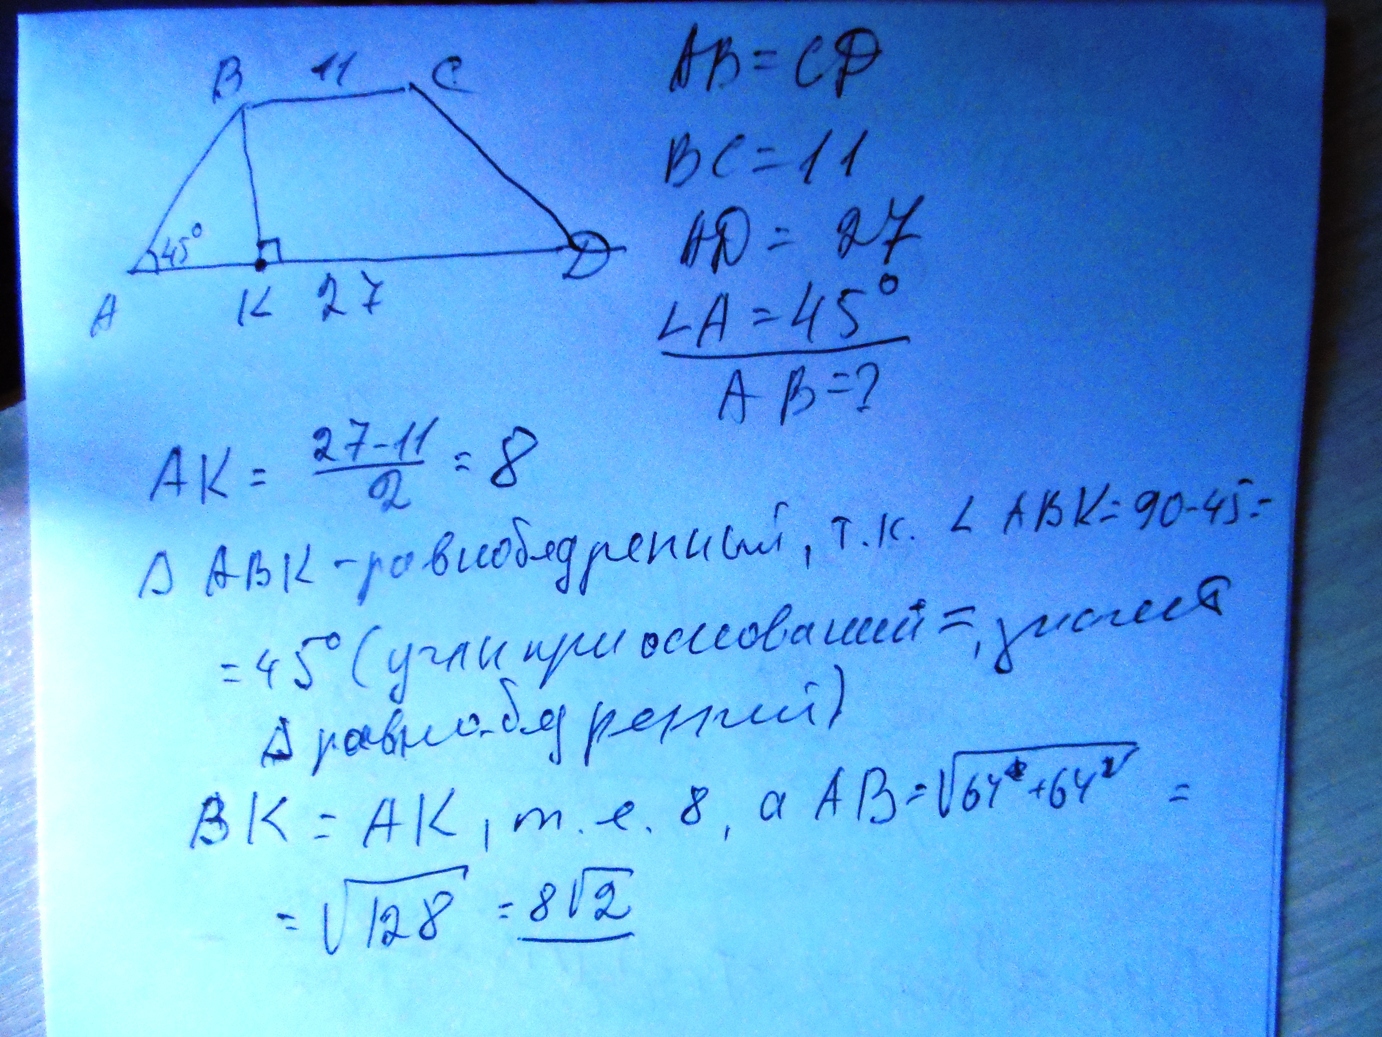 B 11 C
AB = CD
BC = 11
45°
AD = 27
A K 27 D
∠A = 45°
AB = ?
AK = (27-11)/2 = 8
Δ ABK - равнобедренный, т.к. ∠ ABK = 90-45 =
= 45° (углы при основании =, значит
Δ равнобедренний)
BK = AK, т.е. 8, а AB = √(64²+64²) =
= √128 = 8√2